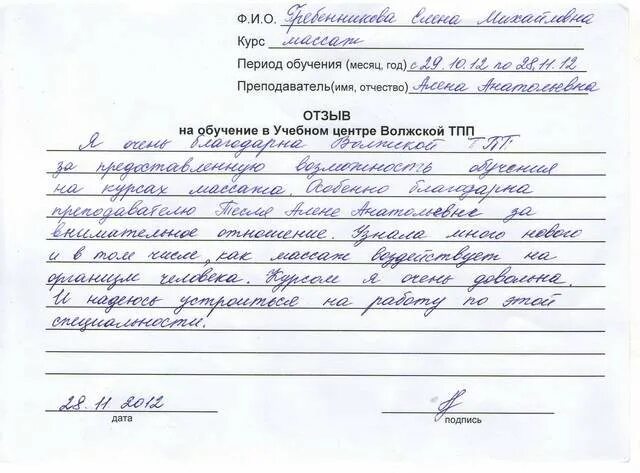 Ф.И.О. Гребенникова Елена Михайловна
Курс массаж
Период обучения (месяц, год) с 29.10.12 по 28.11.12
Преподаватель(имя, отчество) Алена Анатольевна
ОТЗЫВ
на обучение в Учебном центре Волжской ТПП
Я очень благодарна Волжской ТПП
за предоставленную возможность обучения
на курсах массажа. Особенно благодарна
преподавателю Тесля Алене Анатольевне за
внимательное отношение. Узнала много нового
и в том числе, как массаж воздействует на
организм человека. Курсом я очень довольна.
И надеюсь устроиться на работу по этой
специальности.
28.11.2012
дата
подпись